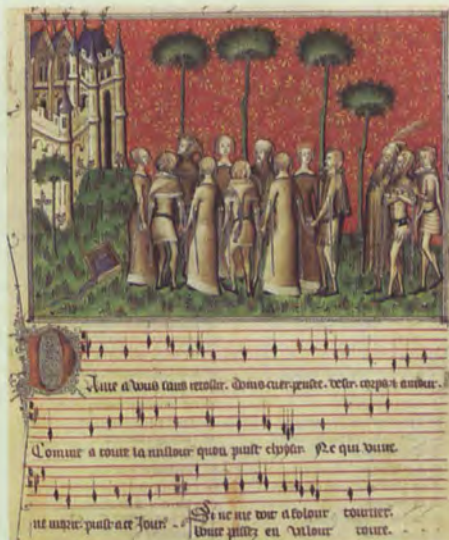 Dame a vous sans retollir. Dons cuer. pensee. desir. corps & amour.
Comme a toute la millour quon puist choisir. Ne qui vivre.
ne morir. puist a ce jour. Si ne me doit a folour tourner.
passez en valour toute.